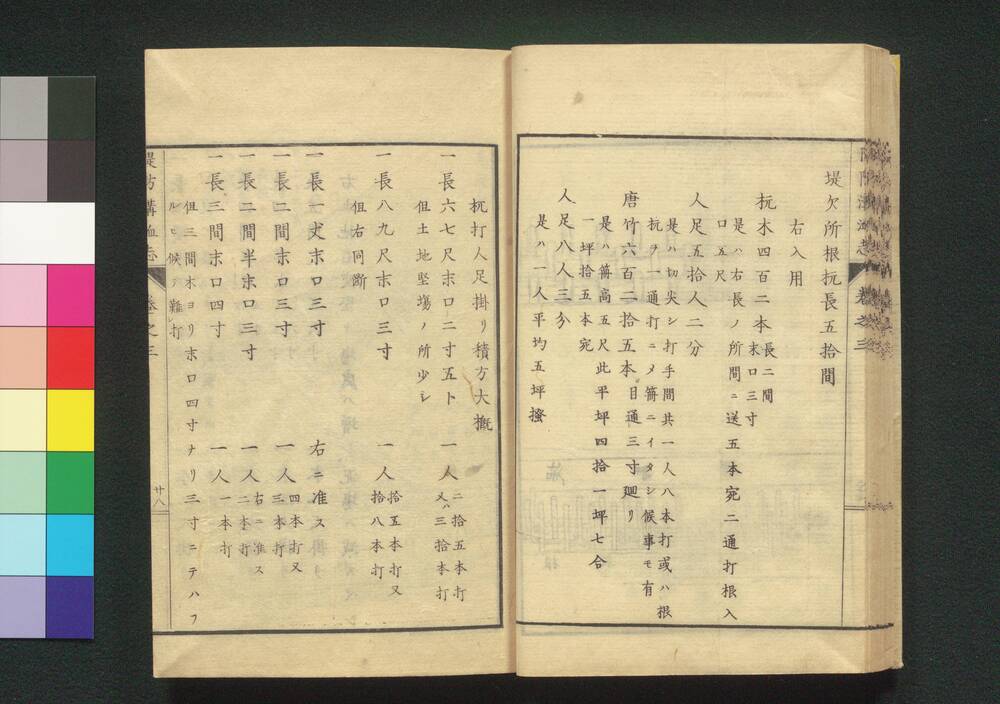 堤欠所根杭長五拾間
右入用
杭木四百二本 長二間 末口三寸
是ハ右長ノ所間ニ送五本宛二通打根入
口五尺
人足五拾人二分
是ハ切尖シ打手間共一人八本打或ハ根
杭ヲ一通打ニメ篊ニイタシ候事モ有
唐竹六百二拾五本 目通三寸廻リ
是ハ篊高五尺此平坪四拾一坪七合
一坪拾五本宛
人足八人三分
是ハ一人平均五坪搔
杭打人足掛リ積方大概
一長六七尺末口二寸五ト 一人 二拾五本打 又ハ三拾本打
但土地堅場ノ所少シ
一長八九尺末口三寸 一人 拾五本打又 拾八本打
但右同断
一長一丈末口三寸 右ニ准ス
一長二間末口三寸 一人 四本打又 三本打
一長二間半末口三寸 一人 右ニ准ス 二本打
一長三間末口四寸 一人 一本打
但三間木ヨリ末口四寸ナリ三寸ニテハフ
ルヒ候テ難シ打
堤防溝洫志 巻之三 廿八